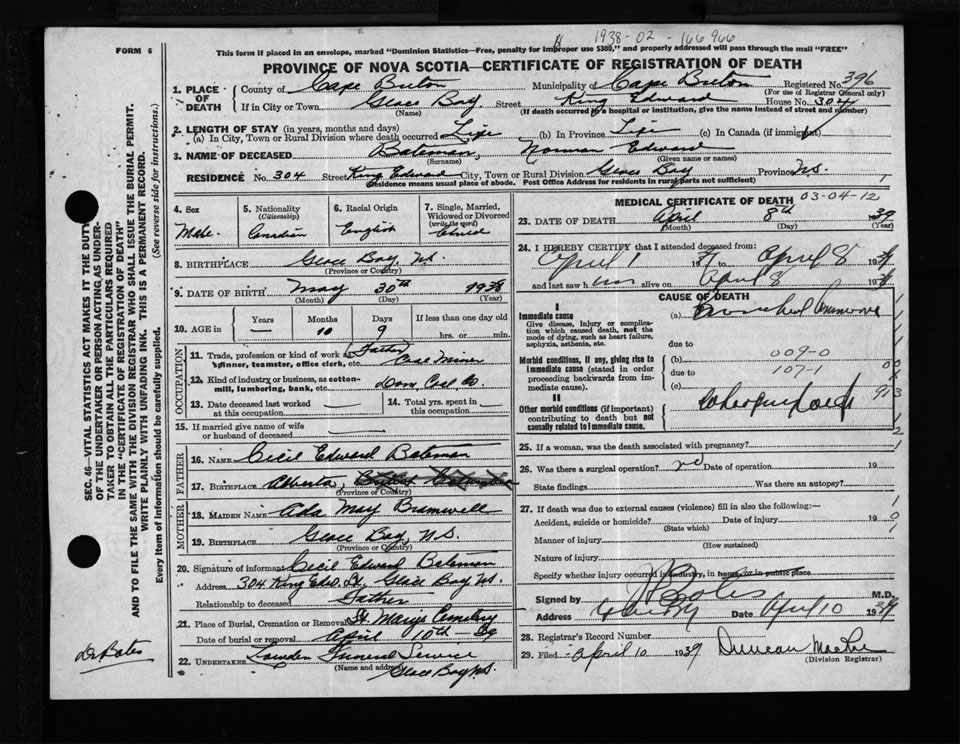 1938-02-166966
FORM 6
This form if placed in an envelope, marked "Dominion Statistics—Free, penalty for improper use $300," and properly addressed will pass through the mail "FREE"
PROVINCE OF NOVA SCOTIA—CERTIFICATE OF REGISTRATION OF DEATH
1. PLACE OF DEATH
County of Cape Breton Municipality of Cape Breton Registered No. 396
(For use of Registrar General only)
If in City or Town Glace Bay Street King Edward House No. 304
(Name) (If death occurred in a hospital or institution, give the name instead of street and number)
2. LENGTH OF STAY (in years, months and days)
(a) In City, Town or Rural Division where death occurred Life (b) In Province Life (c) In Canada (if immigrant)
3. NAME OF DECEASED Bateman, Norman Edward
(Surname) (Given name or names)
RESIDENCE No. 304 Street King Edward City, Town or Rural Division Glace Bay Province N.S.
(Residence means usual place of abode. Post Office Address for residents in rural parts not sufficient)
4. Sex Male
5. Nationality (Citizenship) Canadian
6. Racial Origin English
7. Single, Married, Widowed or Divorced (write the word) Child
8. BIRTHPLACE Glace Bay, N.S.
(Province or Country)
9. DATE OF BIRTH May 30th 1938
(Month) (Day) (Year)
10. AGE in Years — Months 10 Days 9 If less than one day old
hrs. or min.
OCCUPATION
11. Trade, profession or kind of work as spinner, teamster, office clerk, etc. Father Coal Miner
12. Kind of industry or business, as cotton-mill, lumbering, bank, etc. Dom. Coal Co.
13. Date deceased last worked at this occupation
14. Total yrs. spent in this occupation
15. If married give name of wife or husband of deceased
FATHER
16. NAME Cecil Edward Bateman
17. BIRTHPLACE Alberta,
(Province or Country)
MOTHER
18. MAIDEN NAME Ada May Bramwell
19. BIRTHPLACE Glace Bay, N.S.
(Province or Country)
20. Signature of informant Cecil Edward Bateman
Address 304 King Edw. St. Glace Bay N.S.
Relationship to deceased Father
21. Place of Burial, Cremation or Removal St. Mary's Cemetery
Date of burial or removal April 10th - 39
22. UNDERTAKER Funeral Service
(Name and address) Glace Bay N.S.
MEDICAL CERTIFICATE OF DEATH 03-04-12
23. DATE OF DEATH April 8th 1939
(Month) (Day) (Year)
24. I HEREBY CERTIFY that I attended deceased from:
April 1 19 to April 8 19
and last saw him alive on April 8 19
CAUSE OF DEATH
I
Immediate cause
Give disease, injury or complication which caused death, not the mode of dying, such as heart failure, asphyxia, asthenia, etc.
(a) Bronchial Pneumonia
due to
Morbid conditions, if any, giving rise to immediate cause (stated in order proceeding backwards from immediate cause).
(b) 009-0
due to 107-1
(c)
II
Other morbid conditions (if important) contributing to death but not causally related to immediate cause.
Whooping Cough
25. If a woman, was the death associated with pregnancy?
26. Was there a surgical operation? no Date of operation 19
State findings Was there an autopsy?
27. If death was due to external causes (violence) fill in also the following:—
Accident, suicide or homicide? Date of injury 19
(State which)
Manner of injury
(How sustained)
Nature of injury
Specify whether injury occurred in industry, in home or in public place
Signed by M.D.
Address Date April 10 1939
28. Registrar's Record Number
29. Filed April 10 1939 Duncan MacRae
(Division Registrar)
SEC. 46—VITAL STATISTICS ACT MAKES IT THE DUTY OF THE UNDERTAKER OR PERSON ACTING AS UNDERTAKER TO OBTAIN ALL THE PARTICULARS REQUIRED IN THE "CERTIFICATE OF REGISTRATION OF DEATH" AND TO FILE THE SAME WITH THE DIVISION REGISTRAR WHO SHALL ISSUE THE BURIAL PERMIT.
WRITE PLAINLY WITH UNFADING INK. THIS IS A PERMANENT RECORD.
Every item of information should be carefully supplied. (See reverse side for instructions.)
Dr Bates